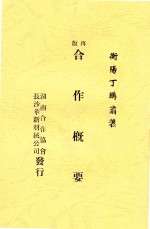 衡陽丁鵬翥著
再版
合作概要
湖南合作協會
長沙革新印刷公司發行